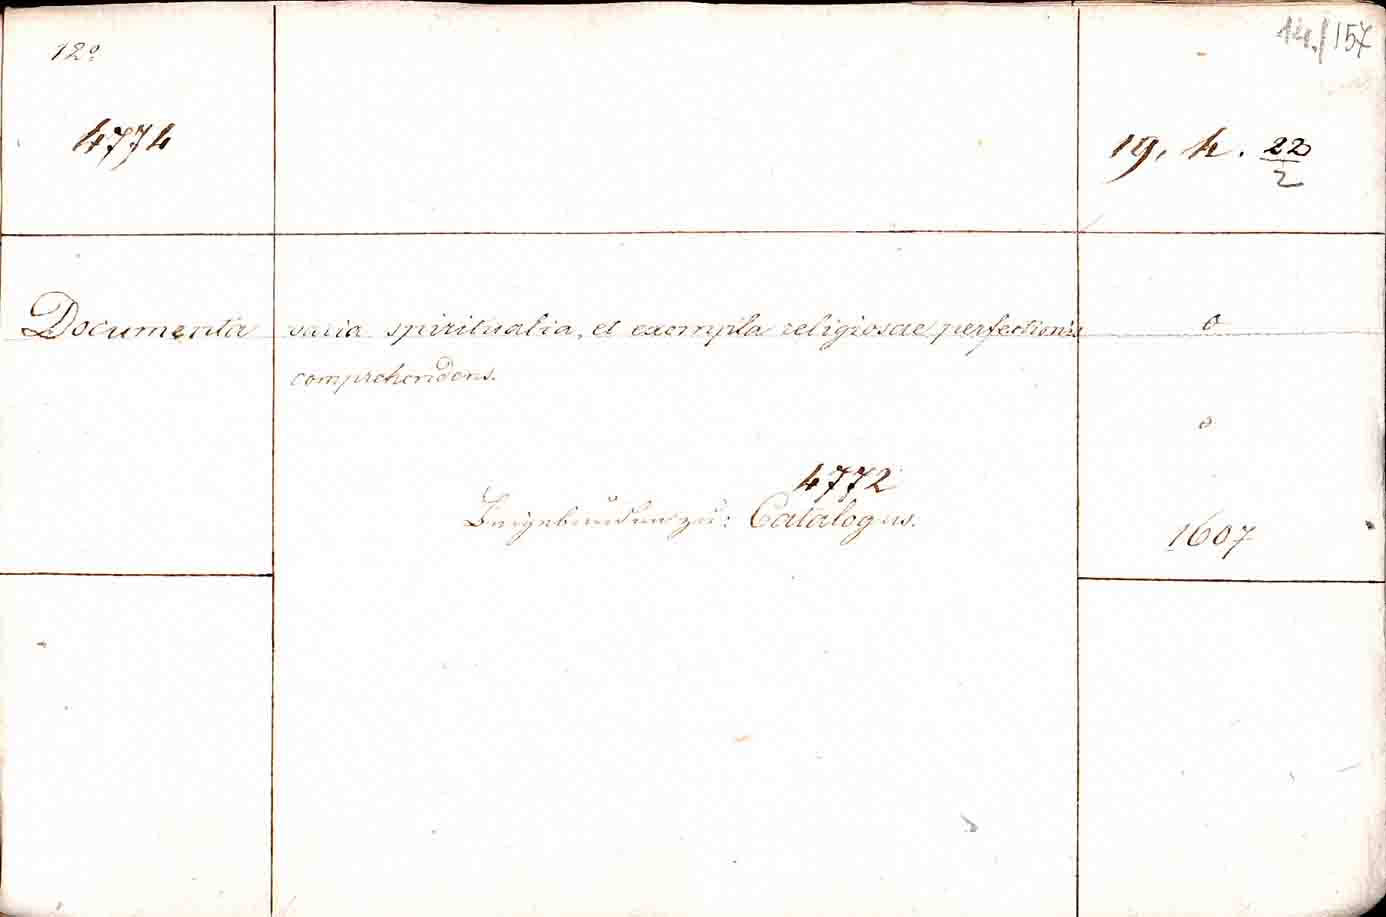 12°
14./157
4774
19. k. 22/2
Documenta varia spiritualia, et exempla religiosae perfectionis
comprehendens.
o
o
4772
Beigebunden zu: Catalogus.
1607